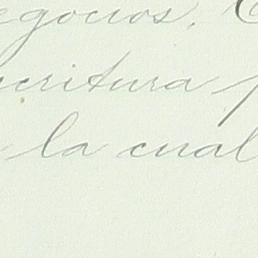 negocios.
scritura
la cual